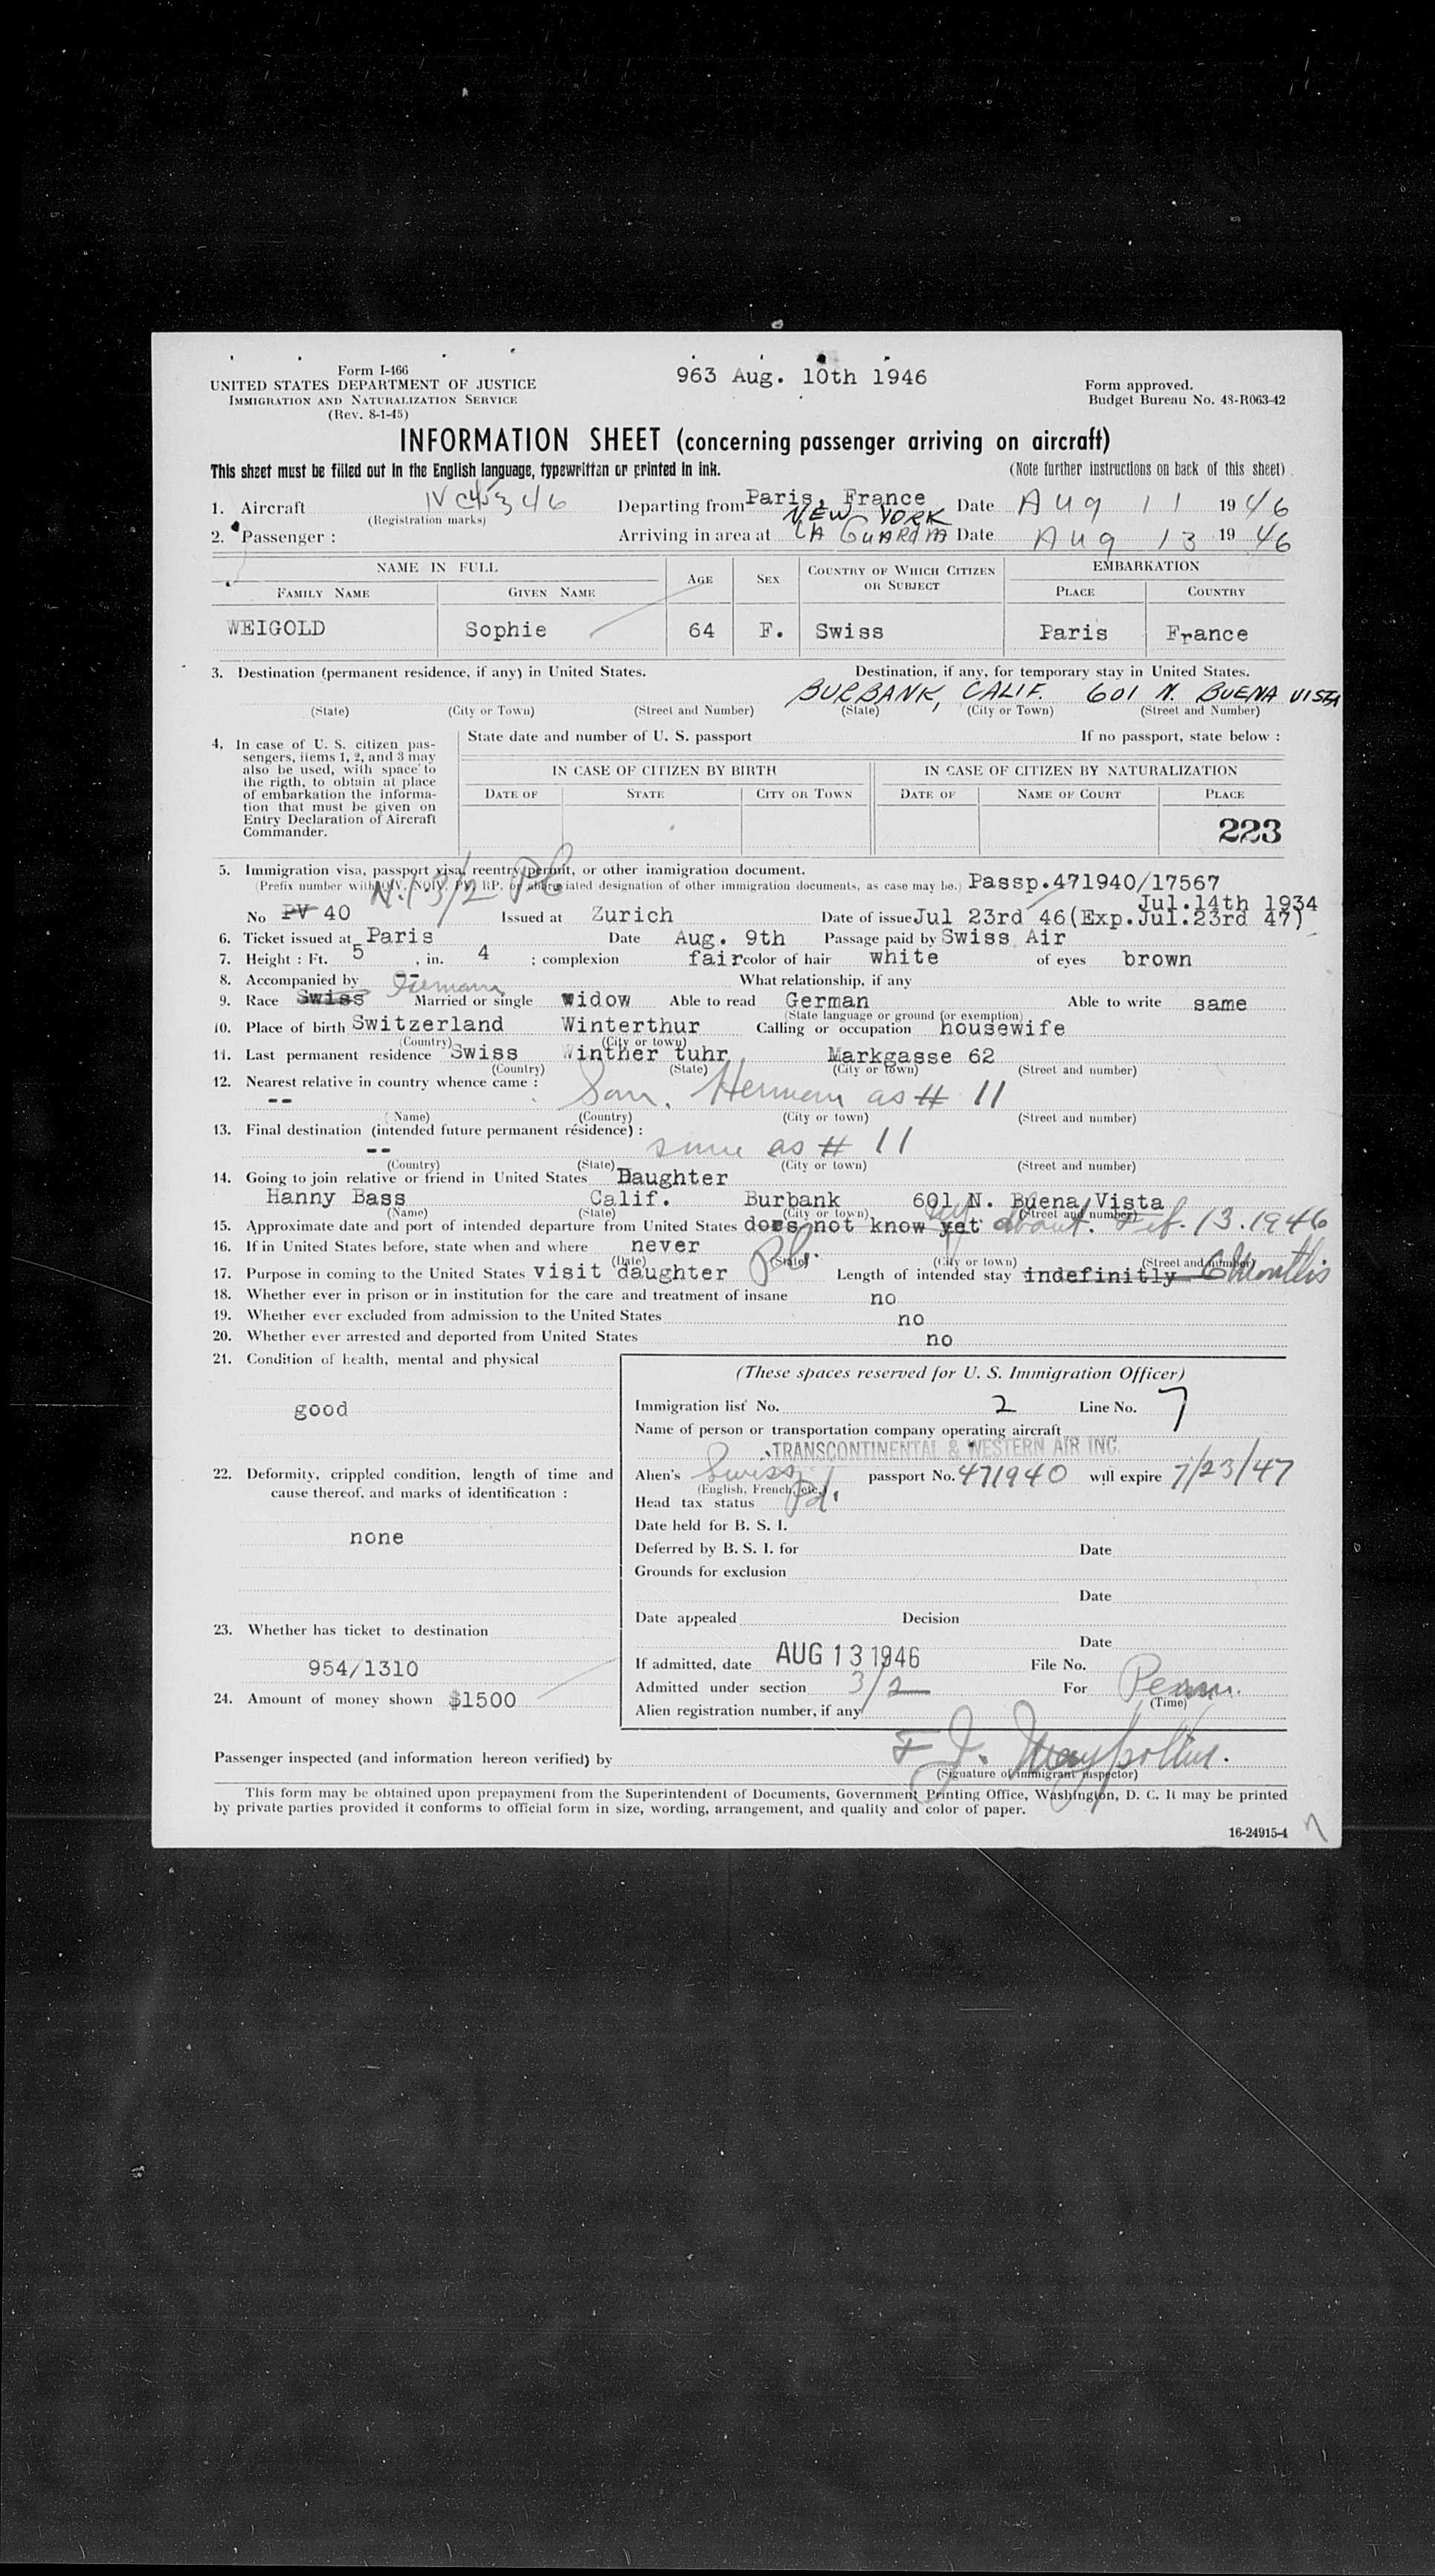 963 Aug. 10th 1946
Form I-466
UNITED STATES DEPARTMENT OF JUSTICE
IMMIGRATION AND NATURALIZATION SERVICE
(Rev. 8-1-45)
Form approved.
Budget Bureau No. 43-R063-42
INFORMATION SHEET (concerning passenger arriving on aircraft)
This sheet must be filled out in the English language, typewritten or printed in ink. (Note further instructions on back of this sheet)
1. Aircraft Departing from Paris, France Date Aug 11 1946
(Registration marks)
NEW YORK
2. Passenger : Arriving in area at LA GUARDIA Date Aug 13 1946
NAME IN FULL AGE SEX COUNTRY OF WHICH CITIZEN OR SUBJECT EMBARKATION
FAMILY NAME GIVEN NAME PLACE COUNTRY
WEIGOLD Sophie 64 F. Swiss Paris France
3. Destination (permanent residence, if any) in United States. Destination, if any, for temporary stay in United States.
BURBANK, CALIF. 601 N. BUENA VISTA
(State) (City or Town) (Street and Number) (State) (City or Town) (Street and Number)
4. In case of U. S. citizen pas-
sengers, items 1, 2, and 3 may
also be used, with space to
the rigth, to obtain at place
of embarkation the informa-
tion that must be given on
Entry Declaration of Aircraft
Commander.
State date and number of U. S. passport If no passport, state below :
IN CASE OF CITIZEN BY BIRTH IN CASE OF CITIZEN BY NATURALIZATION
DATE OF STATE CITY OR TOWN DATE OF NAME OF COURT PLACE
223
5. Immigration visa, passport visa, reentry permit, or other immigration document.
(Prefix number with QIV, NQIV, PV, RP, or abbreviated designation of other immigration documents, as case may be.) Passp.471940/17567
Jul.14th 1934
No PV 40 3/2 Issued at Zurich Date of issue Jul 23rd 46(Exp.Jul.23rd 47)
6. Ticket issued at Paris Date Aug. 9th Passage paid by Swiss Air
7. Height : Ft. 5 , in. 4 ; complexion fair color of hair white of eyes brown
8. Accompanied by -- What relationship, if any
9. Race Swiss German Married or single widow Able to read German Able to write same
(State language or ground for exemption)
10. Place of birth Switzerland Winterthur Calling or occupation housewife
(Country) (City or town)
11. Last permanent residence Swiss Winther tuhr Markgasse 62
(Country) (State) (City or town) (Street and number)
12. Nearest relative in country whence came :
-- Son, Herman as # 11
(Name) (Country) (City or town) (Street and number)
13. Final destination (intended future permanent résidence) :
-- same as # 11
(Country) (State) (City or town) (Street and number)
14. Going to join relative or friend in United States Daughter
Hanny Bass Calif. Burbank 601 N. Buena Vista
(Name) (State) (City or town) (Street and number)
15. Approximate date and port of intended departure from United States does not know yet about. Feb. 13. 1946
16. If in United States before, state when and where never
(Date) (State) (City or town) (Street and number)
17. Purpose in coming to the United States visit daughter Length of intended stay indefinitly 6 Months
18. Whether ever in prison or in institution for the care and treatment of insane no
19. Whether ever excluded from admission to the United States no
20. Whether ever arrested and deported from United States no
21. Condition of health, mental and physical
good
22. Deformity, crippled condition, length of time and
cause thereof, and marks of identification :
none
23. Whether has ticket to destination
954/1310
24. Amount of money shown $1500
(These spaces reserved for U. S. Immigration Officer)
Immigration list No. 2 Line No. 7
Name of person or transportation company operating aircraft
TRANSCONTINENTAL & WESTERN AIR INC.
Alien's Swiss passport No. 471940 will expire 7/23/47
(English, French, etc.)
Head tax status Pd.
Date held for B. S. I.
Deferred by B. S. I. for Date
Grounds for exclusion
Date
Date appealed Decision
Date
If admitted, date AUG 13 1946 File No.
Admitted under section 3/2 For
(Time)
Alien registration number, if any
Passenger inspected (and information hereon verified) by
(Signature of immigrant inspector)
This form may be obtained upon prepayment from the Superintendent of Documents, Government Printing Office, Washington, D. C. It may be printed
by private parties provided it conforms to official form in size, wording, arrangement, and quality and color of paper.
16-24915-4